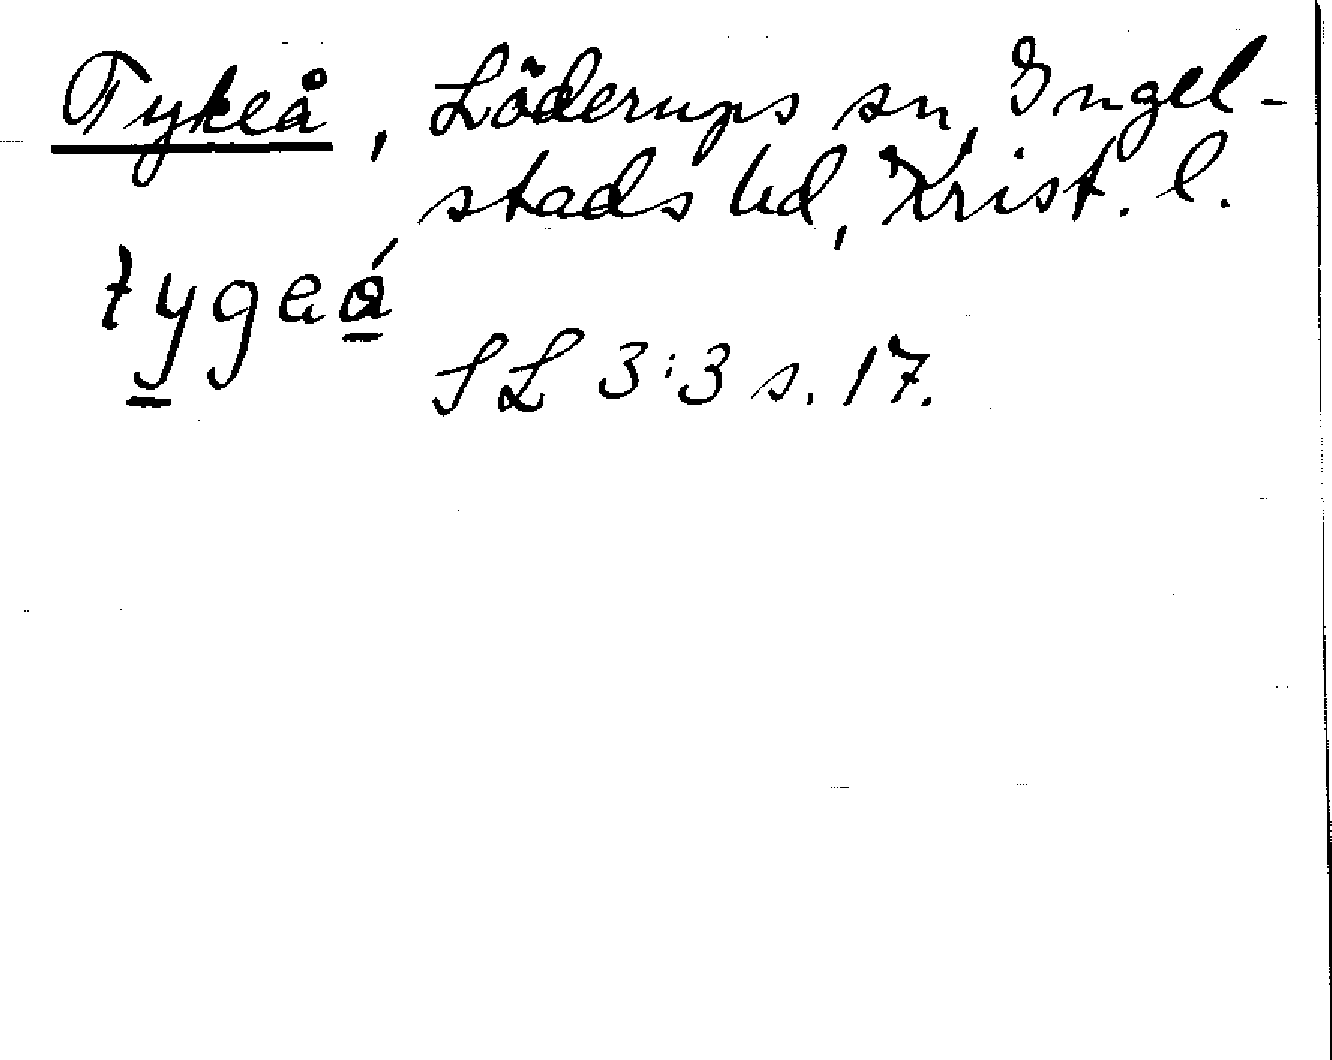 Tykeå, Löderups sn, Ingel-
stads hd, Krist. l.
tygeå
SL 3:3 s. 17.